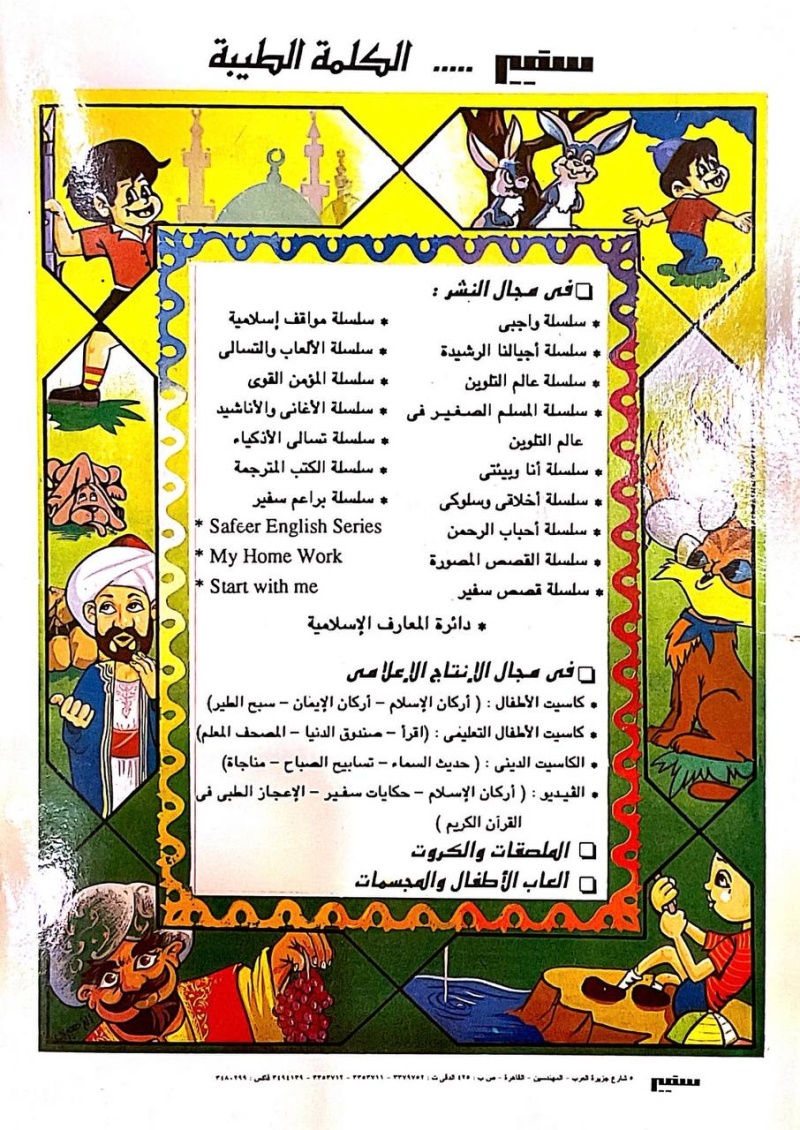 سفير ..... الكلمة الطيبة
❑ فى مجال النشر :
* سلسلة واجبى
* سلسلة أجيالنا الرشيدة
* سلسلة عالم التلوين
* سلسلة المسلم الصغير فى
عالم التلوين
* سلسلة أنا وبيئتى
* سلسلة أخلاقى وسلوكى
* سلسلة أحباب الرحمن
* سلسلة القصص المصورة
* سلسلة قصص سفير
* سلسلة مواقف إسلامية
* سلسلة الألعاب والتسالى
* سلسلة المؤمن القوى
* سلسلة الأغانى والأناشيد
* سلسلة تسالى الأذكياء
* سلسلة الكتب المترجمة
* سلسلة براعم سفير
* Safeer English Series
* My Home Work
* Start with me
* دائرة المعارف الإسلامية
❑ فى مجال الإنتاج الإعلامى
* كاسيت الأطفال : ( أركان الإسلام – أركان الإيمان – سبح الطير)
* كاسيت الأطفال التعليمى : (اقرأ – صندوق الدنيا – المصحف المعلم)
* الكاسيت الدينى : ( حديث السماء – تسابيح الصباح – مناجاة)
* الڤيديو : ( أركان الإسلام – حكايات سفير – الإعجاز الطبى فى
القرآن الكريم )
❑ الملصقات والكروت
❑ ألعاب الأطفال والمجسمات
٥ شارع جزيرة العرب – المهندسين – القاهرة – ص ب : ٤٢٥ الدقى ت : ٣٣٧٩٧٥٢ – ٣٣٥٣٧١١ – ٣٣٥٣٧١٢ – ٣٤٩٤١٣٩ فاكس : ٣٤٨٠٢٩٩
سفير